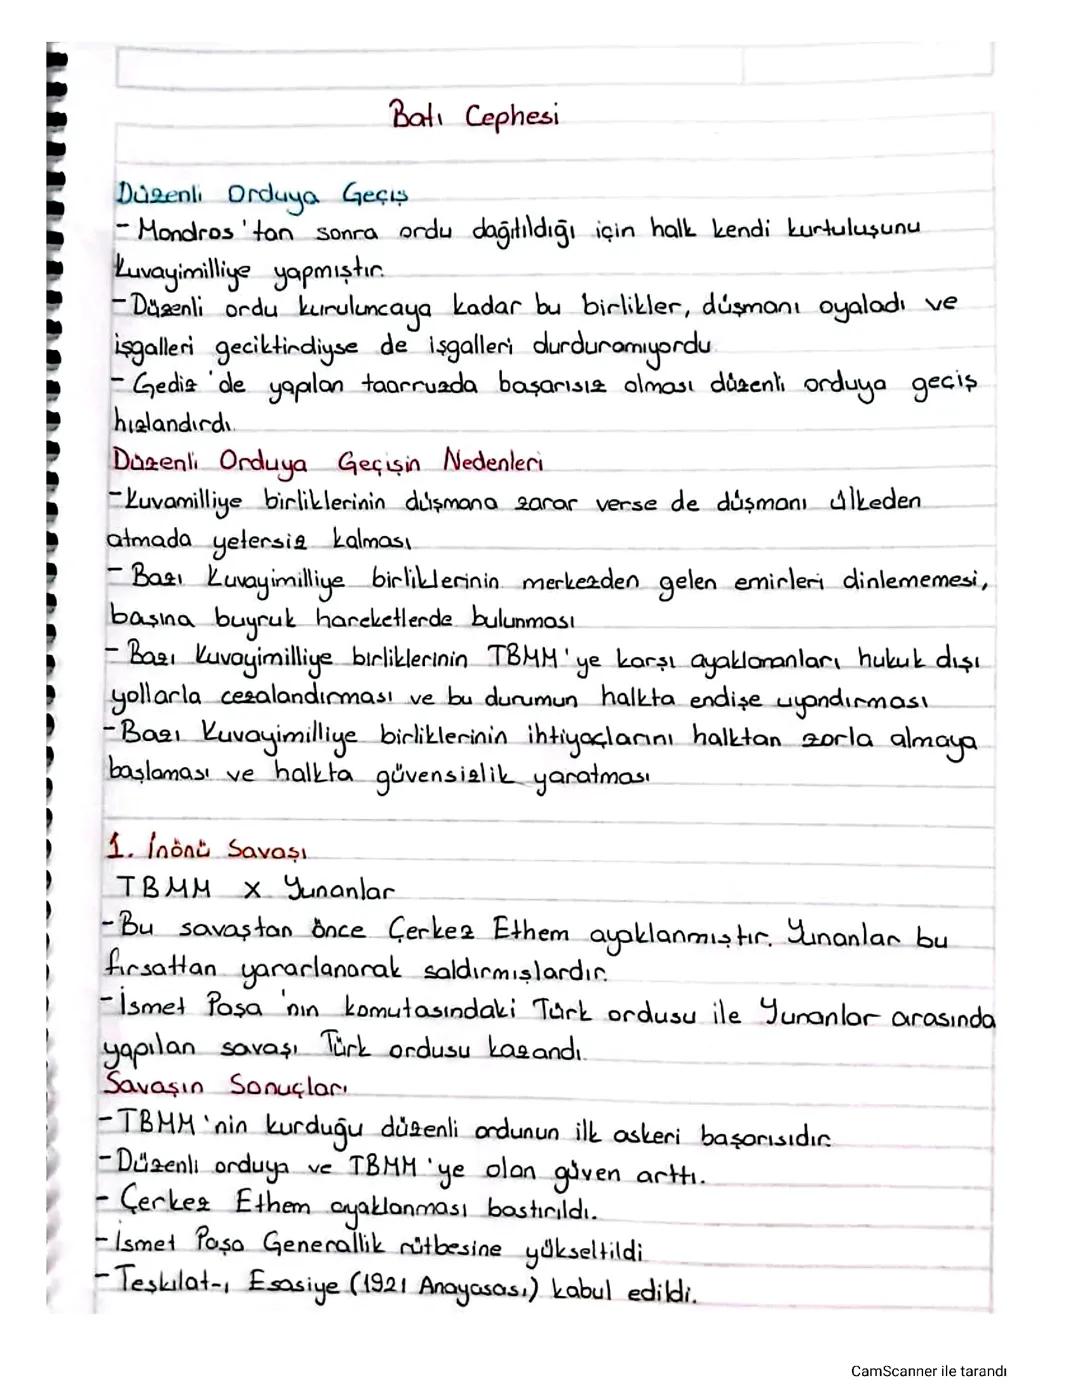 Batı Cephesi
Düzenli Orduya Geçiş
- Mondros'tan sonra ordu dağıtıldığı için halk kendi kurtuluşunu
Kuvayimilliye yapmıştır.
- Düzenli ordu kuruluncaya kadar bu birlikler, düşmanı oyaladı ve
işgalleri geciktirdiyse de işgalleri durduramıyordu.
- Gediz'de yapılan taarruzda başarısız olması düzenli orduya geçiş
hızlandırdı.
Düzenli Orduya Geçişin Nedenleri
- Kuvamilliye birliklerinin düşmana zarar verse de düşmanı ülkeden
atmada yetersiz kalması
- Bazı Kuvayimilliye birliklerinin merkezden gelen emirleri dinlememesi,
başına buyruk hareketlerde bulunması
- Bazı Kuvayimilliye birliklerinin TBMM'ye karşı ayaklananları hukuk dışı
yollarla cezalandırması ve bu durumun halkta endişe uyandırması
- Bazı Kuvayimilliye birliklerinin ihtiyaçlarını halktan zorla almaya
başlaması ve halkta güvensizlik yaratması
1. İnönü Savaşı
TBMM x Yunanlar
- Bu savaştan önce Çerkez Ethem ayaklanmıştır. Yunanlar bu
fırsattan yararlanarak saldırmışlardır.
- İsmet Paşa'nın komutasındaki Türk ordusu ile Yunanlar arasında
yapılan savaşı Türk ordusu kazandı.
Savaşın Sonuçları
- TBMM'nin kurduğu düzenli ordunun ilk askeri başarısıdır.
- Düzenli orduya ve TBMM'ye olan güven arttı.
- Çerkez Ethem ayaklanması bastırıldı.
- İsmet Paşa Generallik rütbesine yükseltildi
- Teşkilat-ı Esasiye (1921 Anayasası) kabul edildi.
CamScanner ile tarandı